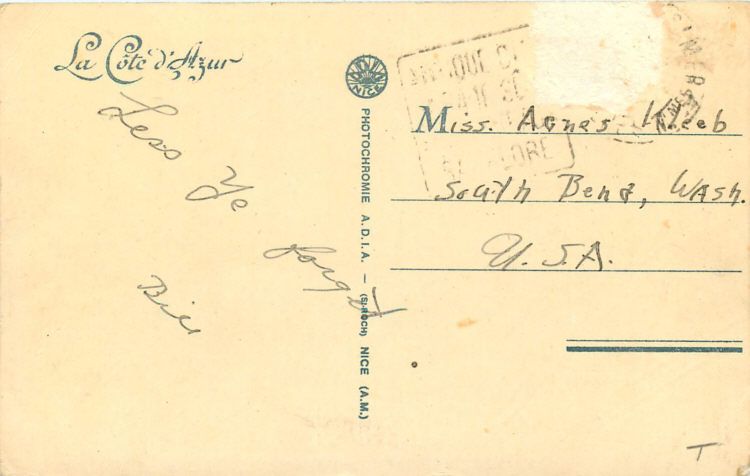 La Côte d'Azur
Less Ye
forgit
Bill
ADIA
NICE
PHOTOCHROMIE A.D.I.A. — (S.I-ROCH) NICE (A.M.)
Miss. Agnes Kleeb
South Bend, Wash.
U.S.A.
T